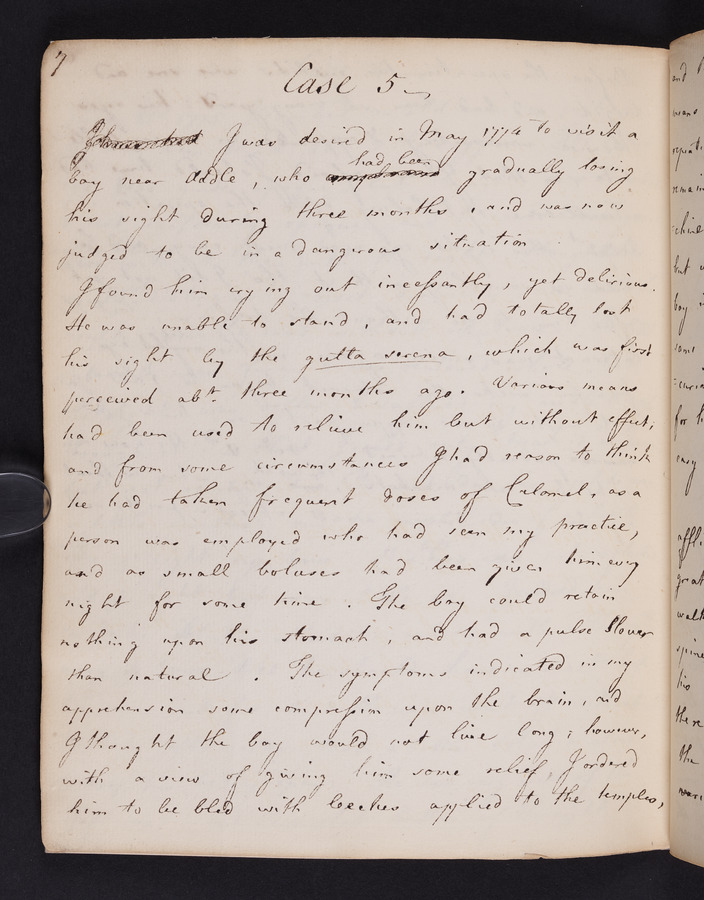 7
Case 5
I was desired in May 1774 to visit a
had been
boy near Addle, who gradually losing
his sight during three months, and was now
judged to be in a dangerous situation
I found him crying out incessantly, yet delirious.
He was unable to stand, and had totally lost
his sight by the gutta serena, which was first
perceived abt. three months ago. Various means
had been used to relieve him but without effect;
and from some circumstances I had reason to think
he had taken frequent doses of Calomel, as a
person was employed who had seen my practice,
and as small boluses had been given him every
night for some time. The boy could retain
nothing upon his stomach, and had a pulse slower
than natural. The symptoms indicated in my
apprehension some compression upon the brain, and
I thought the boy would not live long; however,
with a view of giving him some relief, I ordered
him to be bled with leeches applied to the temples,